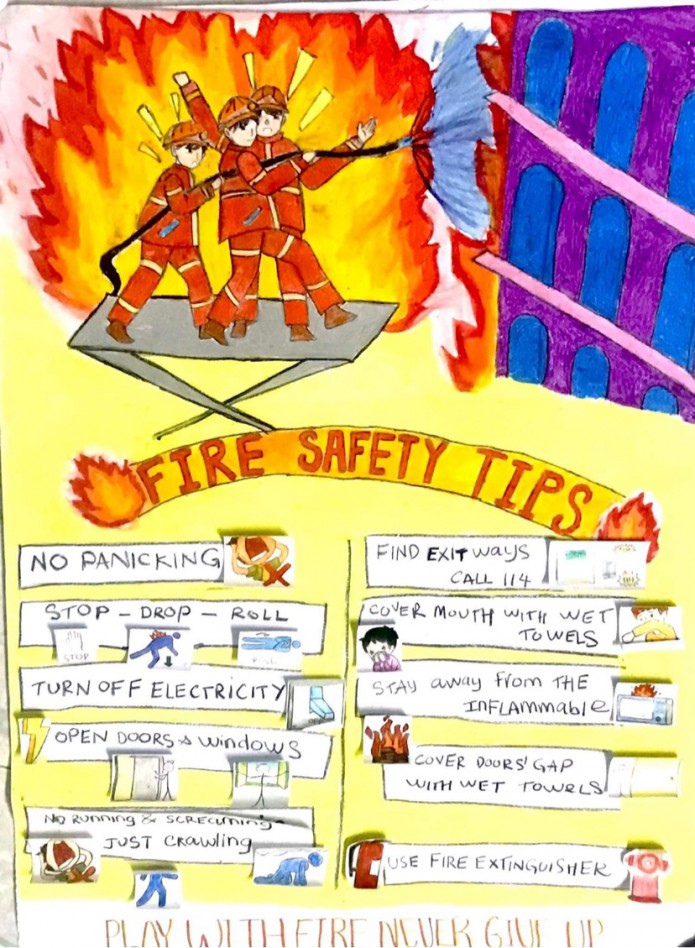 FIRE SAFETY TIPS
NO PANICKING
STOP - DROP - ROLL
STOP
ROLL
TURN OFF ELECTRICITY
OPEN DOORS & windows
NO RUNNING & SCREAMING
JUST crawling
FIND EXIT ways
CALL 114
COVER MOUTH WITH WET
TOWELS
STAY away from THE
INFLAMMablE
COVER DOORS' GAP
WITH WET TOWELS
USE FIRE EXTINGUISHER
PLAY WITH FIRE NEVER GIVE UP